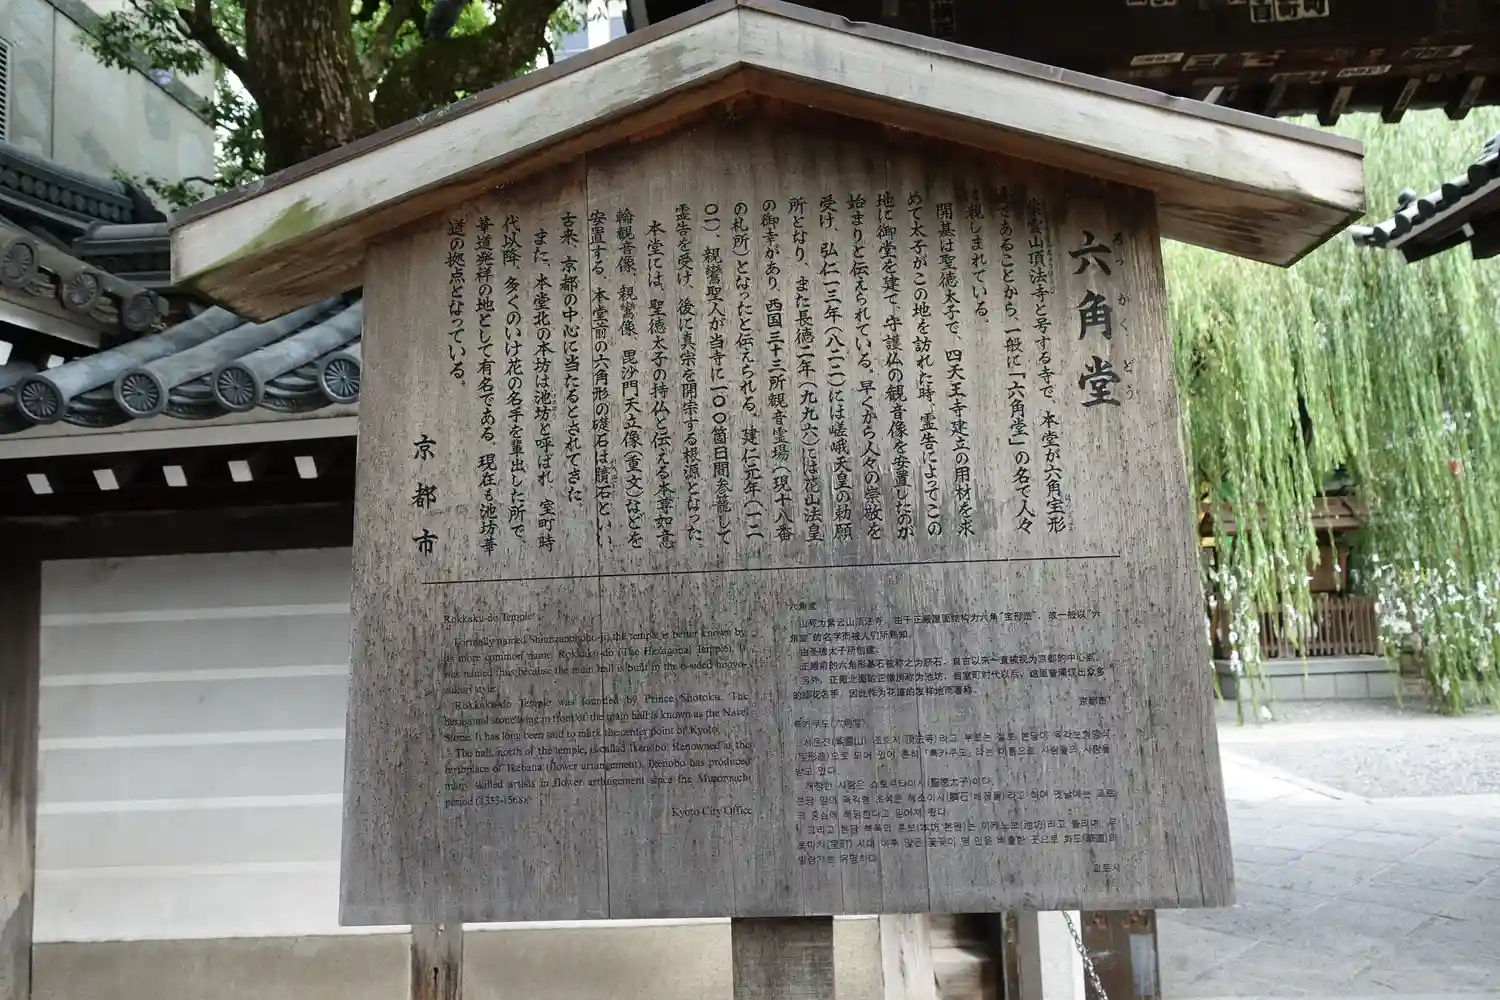 六角堂
ろっかくどう
紫雲山頂法寺と号する寺で、本堂が六角宝形
であることから、一般に「六角堂」の名で人々
に親しまれている。
開基は聖徳太子で、四天王寺建立の用材を求
めて太子がこの地を訪れた時、霊告によってこの
地に御堂を建て、守護仏の観音像を安置したのが
始まりと伝えられている。早くから人々の崇敬を
受け、弘仁一三年(八二二)には嵯峨天皇の勅願
所となり、また長徳二年(九九六)には花山法皇
の御寺があり、西国三十三所観音霊場(現十八番
の札所)となったと伝えられる。建仁元年(一二
〇一)、親鸞聖人が当寺に一〇〇箇日間参籠して
霊告を受け、後に真宗を開宗する根源となった。
本堂には、聖徳太子の持仏と伝える本尊如意
輪観音像、親鸞像、毘沙門天立像(重文)などを
安置する。本堂前の六角形の礎石は臍石といい、
古来、京都の中心に当たるとされてきた。
また、本堂北の本坊は池坊と呼ばれ、室町時
代以降、多くのいけ花の名手を輩出した所で、
華道発祥の地として有名である。現在も池坊華
道の拠点となっている。
京都市
Rokkaku-do Temple
Formally named Shiunzanchoho-ji, the temple is better known by
its more common name, Rokkaku-do (The Hexagonal Temple). It
was named thus because the main hall is built in the 6-sided hogyo-
zukuri style.
Rokkaku-do Temple was founded by Prince Shotoku. The
hexagonal stone lying in front of the main hall is known as the Navel
Stone. It has long been said to mark the center point of Kyoto.
The hall, north of the temple, is called Ikenobo. Renowned as the
birthplace of Ikebana (flower arrangement), Ikenobo has produced
many skilled artists in flower arrangement since the Muromachi
period (1333-1568).
Kyoto City Office
六角堂
山号为紫云山顶法寺。由于正殿屋面结构为六角“宝形造”，故一般以“六
角堂”的名字而被人们所熟知。
由圣德太子所创建。
正殿前的六角形基石被称之为脐石，自古以来一直被视为京都的中心点。
另外，正殿北面的正僧房称为池坊，自室町时代以后，这里曾涌现出众多
的插花名手，因此作为花道的发祥地而著称。
京都市
록카쿠도(六角堂)
시운잔(紫雲山) 쵸호지(頂法寺)라고 부르는 절로 본당이 육각보형양식
(宝形造)으로 되어 있어 흔히 「록카쿠도」라는 이름으로 사람들의 사랑을
받고 있다.
개창한 사람은 쇼토쿠타이시(聖徳太子)이다.
본당 앞의 육각형 초석은 헤소이시(臍石:배꼽돌)라고 하며 옛날에는 교토
의 중심에 해당한다고 믿어져 왔다.
그리고 본당 북쪽의 혼보(本坊:본원)는 이케노보(池坊)라고 불리며, 무
로마치(室町) 시대 이후 많은 꽃꽂이 명인을 배출한 곳으로 화도(華道)의
발상지로 유명하다.
교토시